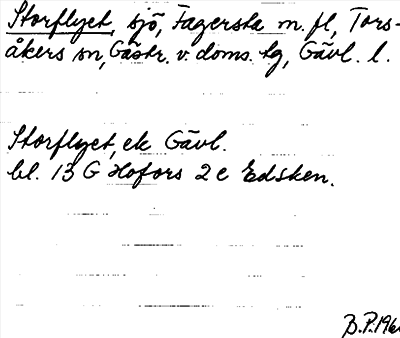 Storflyet, sjö, Fagersta m. fl., Tors-
åkers sn, Gästr. v. doms. tg, Gävl. l.
Storflyet, ek Gävl.
bl. 13 G Hofors 2 c Edsken.
B.P. 196